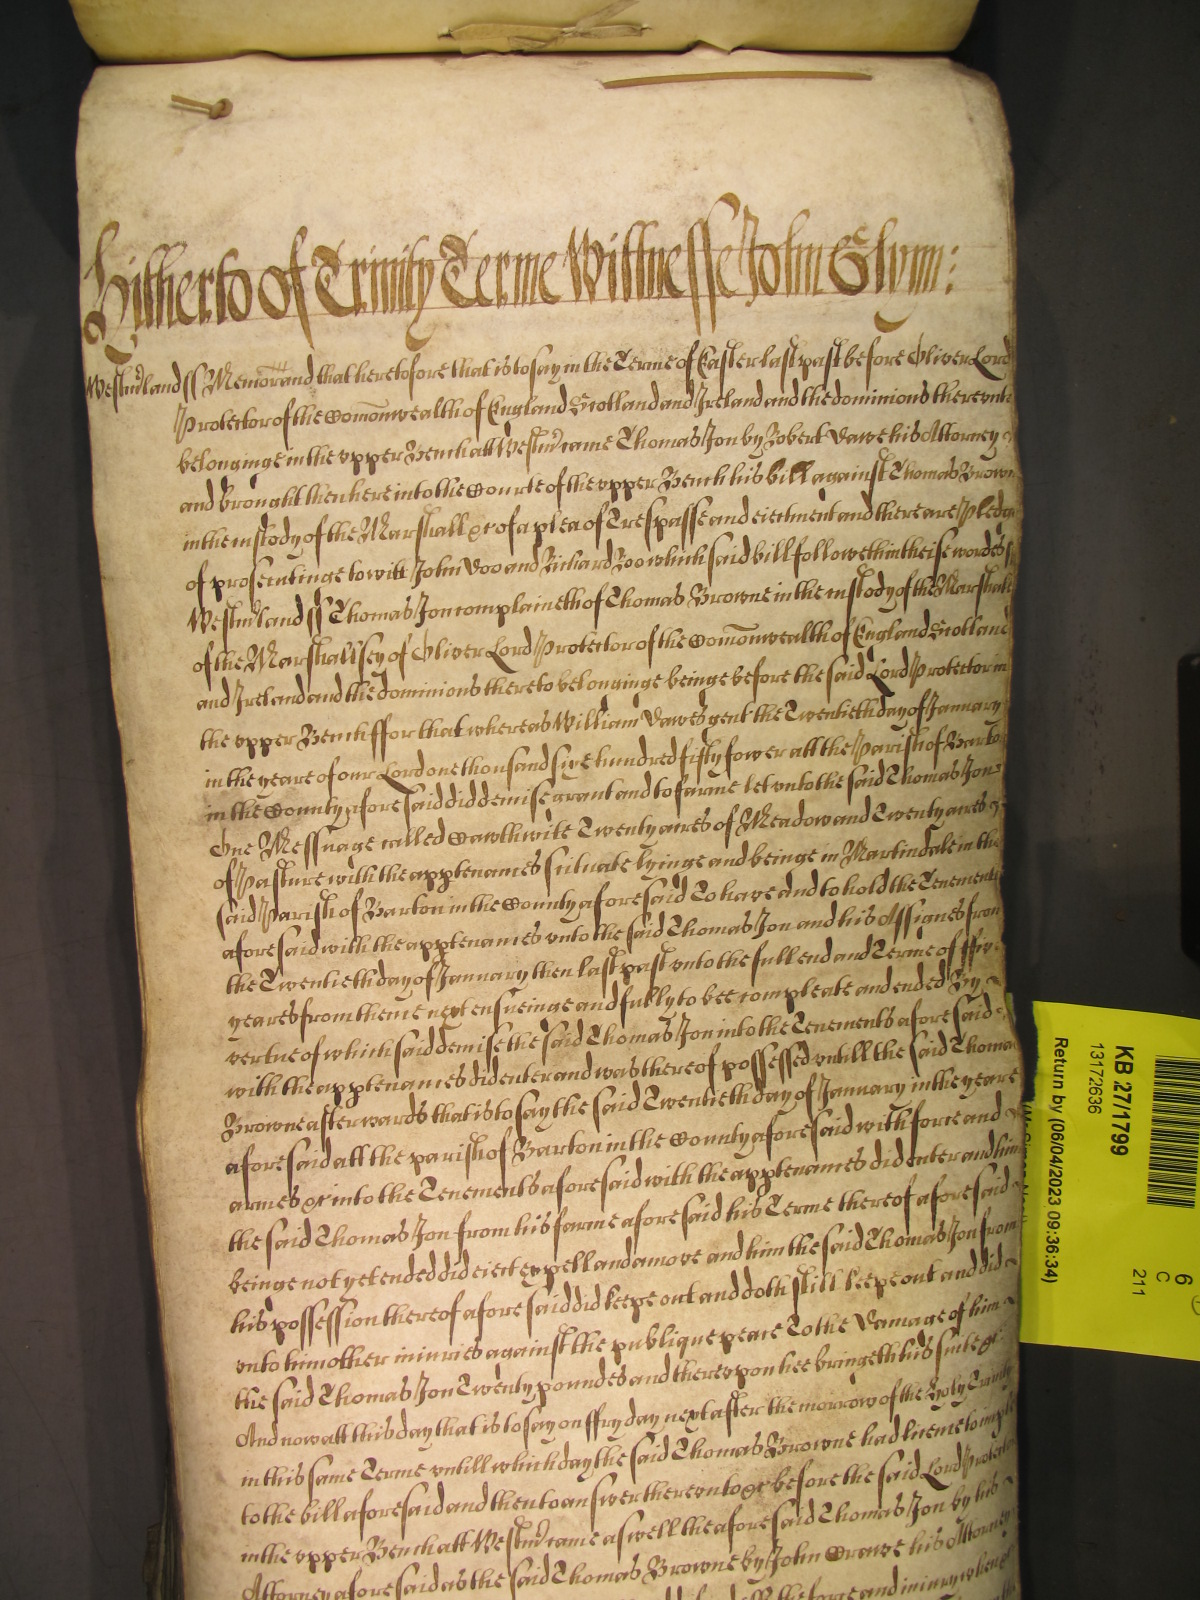 Hitherto of Trinity Terme Wittnesse John Glynn:
Westmland ss Memorand that heretofore that is to say in the Terme of Easter last past before Oliver Lord
Protector of the Comonwealth of England Scotland and Ireland and the dominions thereunto
belonginge in the upper Bench att Westmr came Thomas Jon by Robert Dawe his Attorney
and brought then here into the Courte of the upper Bench his bill against Thomas Browne
in the custody of the Marshall &c of a plea of Trespasse and eiectment and there are Pledg
of prosecutinge to witt John Doo and Richard Roo which said bill followeth in theise wordes ss
Westmland ss Thomas Jon complaineth of Thomas Browne in the custody of the Marshall
of the Marshallsey of Oliver Lord Protector of the Comonwealth of England Scotland
and Ireland and the dominions thereto belonginge beinge before the said Lord Protector in
the upper Bench ffor that whereas William Dawes gent the Twentieth day of January
in the yeare of our Lord one thousand sixe hundred fifty fower att the Parish of Barton
in the County aforesaid did demise grant and to farme let unto the said Thomas Jon
One Messuage called Cawthwite Twenty acres of Meadow and Twenty acres
of Pasture with the apptenances scituate lyinge and beinge in Martindale in the
said Parish of Barton in the County aforesaid To have and to hold the Tenements
aforesaid with the apptenances unto the said Thomas Jon and his Assignes from
the Twentieth day of January then last past unto the full end and Terme of ffive
yeares from thence next ensueinge and fully to bee compleate and ended By
vertue of which said demise the said Thomas Jon into the Tenements aforesaid
with the apptenances did enter and was thereof possessed untill the said Thomas
Browne afterwards that is to say the said Twentieth day of January in the yeare
aforesaid att the parish of Barton in the County aforesaid with force and
armes &c into the Tenements aforesaid with the apptenances did enter and him
the said Thomas Jon from his farme aforesaid his Terme thereof aforesaid
beinge not yet ended did eiect expell and amove and him the said Thomas Jon from
his possession thereof aforesaid did keepe out and doth still keepe out and did
unto him other iniuries against the publique peace To the Damage of him
the said Thomas Jon Twenty poundes and thereupon hee bringeth his suite &c
And now att this day that is to say on ffryday next after the morrow of the Holy Trinity
in this same Terme untill which day the said Thomas Browne had licence to imple
to the bill aforesaid and then to answer thereunto &c before the said Lord Protector
in the upper Bench att Westmr came aswell the aforesaid Thomas Jon by his
Attorney aforesaid as the said Thomas Browne by John Crave his Attorney
the force and iniury when &c
KB 27/1799
13172636
Return by (06/04/2023 09:36:34)
6
C
211